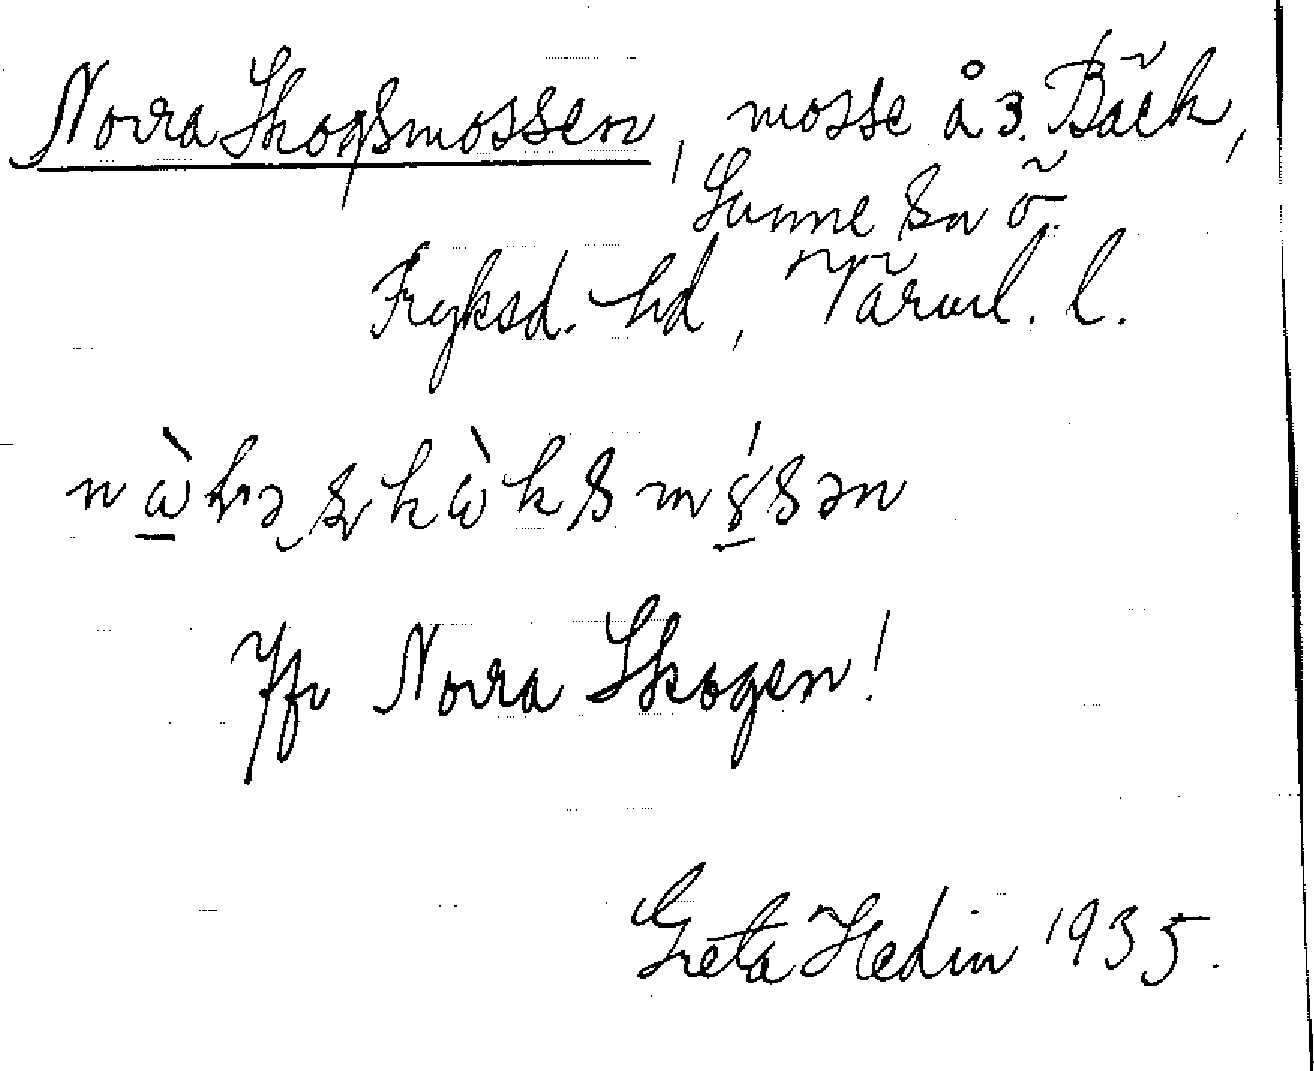 Norra Skogsmossen, mosse å 3. Bäck,
Sunne sn ö.
Fryksd. hd, Värml. l.
Jfr Norra Skogen!
Greta Hedin 1935.